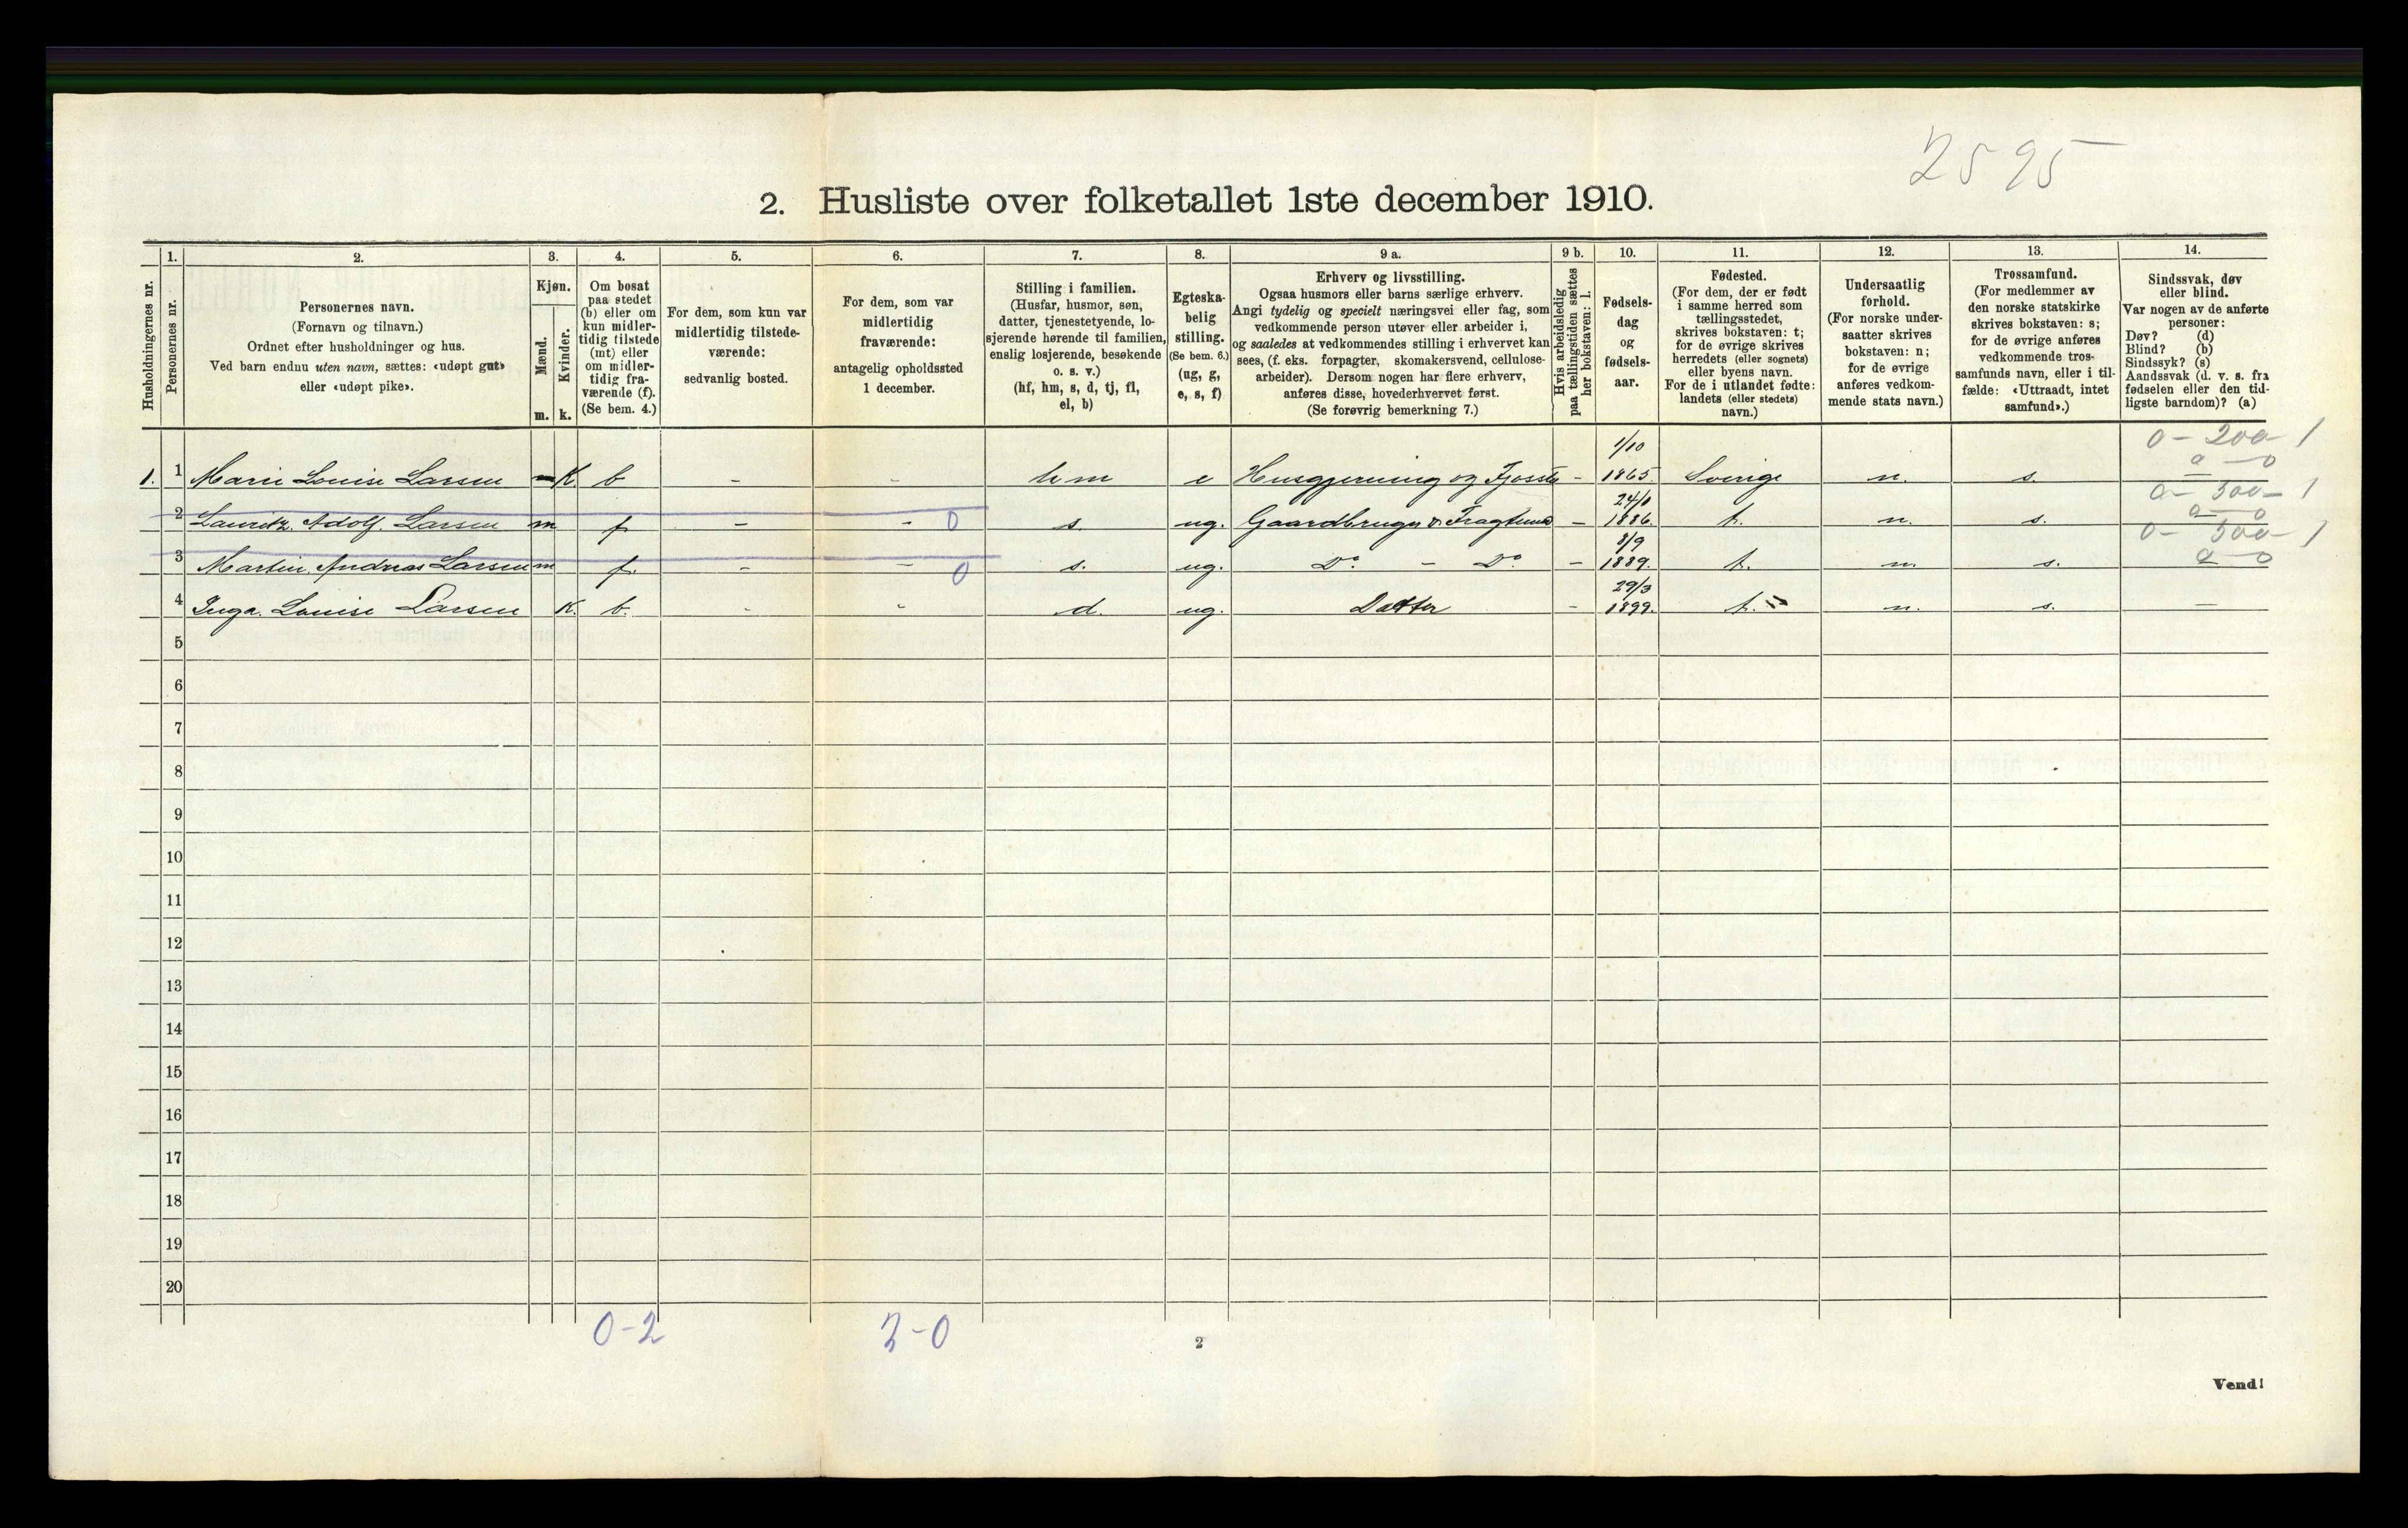 2595
2. Husliste over folketallet 1ste december 1910.
1. 2. 3. 4. 5. 6. 7. 8. 9 a. 9 b. 10. 11. 12. 13. 14.
Husholdningernes nr.
Personernes nr.
Personernes navn.
(Fornavn og tilnavn.)
Ordnet efter husholdninger og hus.
Ved barn endnu uten navn, sættes: «udøpt gut»
eller «udøpt pike».
Kjøn.
Mænd.
Kvinder.
m. k.
Om bosat
paa stedet
(b) eller om
kun midler-
tidig tilstede
(mt) eller
om midler-
tidig fra-
værende (f).
(Se bem. 4.)
For dem, som kun var
midlertidig tilstede-
værende:
sedvanlig bosted.
For dem, som var
midlertidig
fraværende:
antagelig opholdssted
1 december.
Stilling i familien.
(Husfar, husmor, søn,
datter, tjenestetyende, lo-
sjerende hørende til familien,
enslig losjerende, besøkende
o. s. v.)
(hf, hm, s, d, tj, fl,
el, b)
Egteska-
belig
stilling.
(Se bem. 6.)
(ug, g,
e, s, f)
Erhverv og livsstilling.
Ogsaa husmors eller barns særlige erhverv.
Angi tydelig og specielt næringsvei eller fag, som
vedkommende person utøver eller arbeider i,
og saaledes at vedkommendes stilling i erhvervet kan
sees, (f. eks. forpagter, skomakersvend, cellulose-
arbeider). Dersom nogen har flere erhverv,
anføres disse, hovederhvervet først.
(Se forøvrig bemerkning 7.)
Hvis arbeidsledig
paa tællingstiden sættes
her bokstaven: l.
Fødsels-
dag
og
fødsels-
aar.
Fødested.
(For dem, der er født
i samme herred som
tællingsstedet,
skrives bokstaven: t;
for de øvrige skrives
herredets (eller sognets)
eller byens navn.
For de i utlandet fødte:
landets (eller stedets)
navn.)
Undersaatlig
forhold.
(For norske under-
saatter skrives
bokstaven: n;
for de øvrige
anføres vedkom-
mende stats navn.)
Trossamfund.
(For medlemmer av
den norske statskirke
skrives bokstaven: s;
for de øvrige anføres
vedkommende tros-
samfunds navn, eller i til-
fælde: «Uttraadt, intet
samfund».)
Sindssvak, døv
eller blind.
Var nogen av de anførte
personer:
Døv? (d)
Blind? (b)
Sindssyk? (s)
Aandssvak (d. v. s. fra
fødselen eller den tid-
ligste barndom)? (a)
0 - 200 - 1
0 - 0
1. 1 Marie Louise Larsen K. b - - hm e Husgjerning og Fjosst - 1/10 1865. Sverige n. s. —
0 - 300 - 1
0 - 0
2 Lauritz Adolf Larsen m f - - 0 s. ug. Gaardbruger & - 1886. t. n. s.
0 - 500 - 1
0 - 0
3 Martin Andreas Larsen m f. - - 0 s. ug. Do - Do - 8/9 1889. t. n. s.
4 Inga Louise Larsen K. b. - - d. ug. Datter - 29/3 1899. t. n. s. —
5
6
7
8
9
10
11
12
13
14
15
16
17
18
19
20
0-2 2-0
2
Vend!